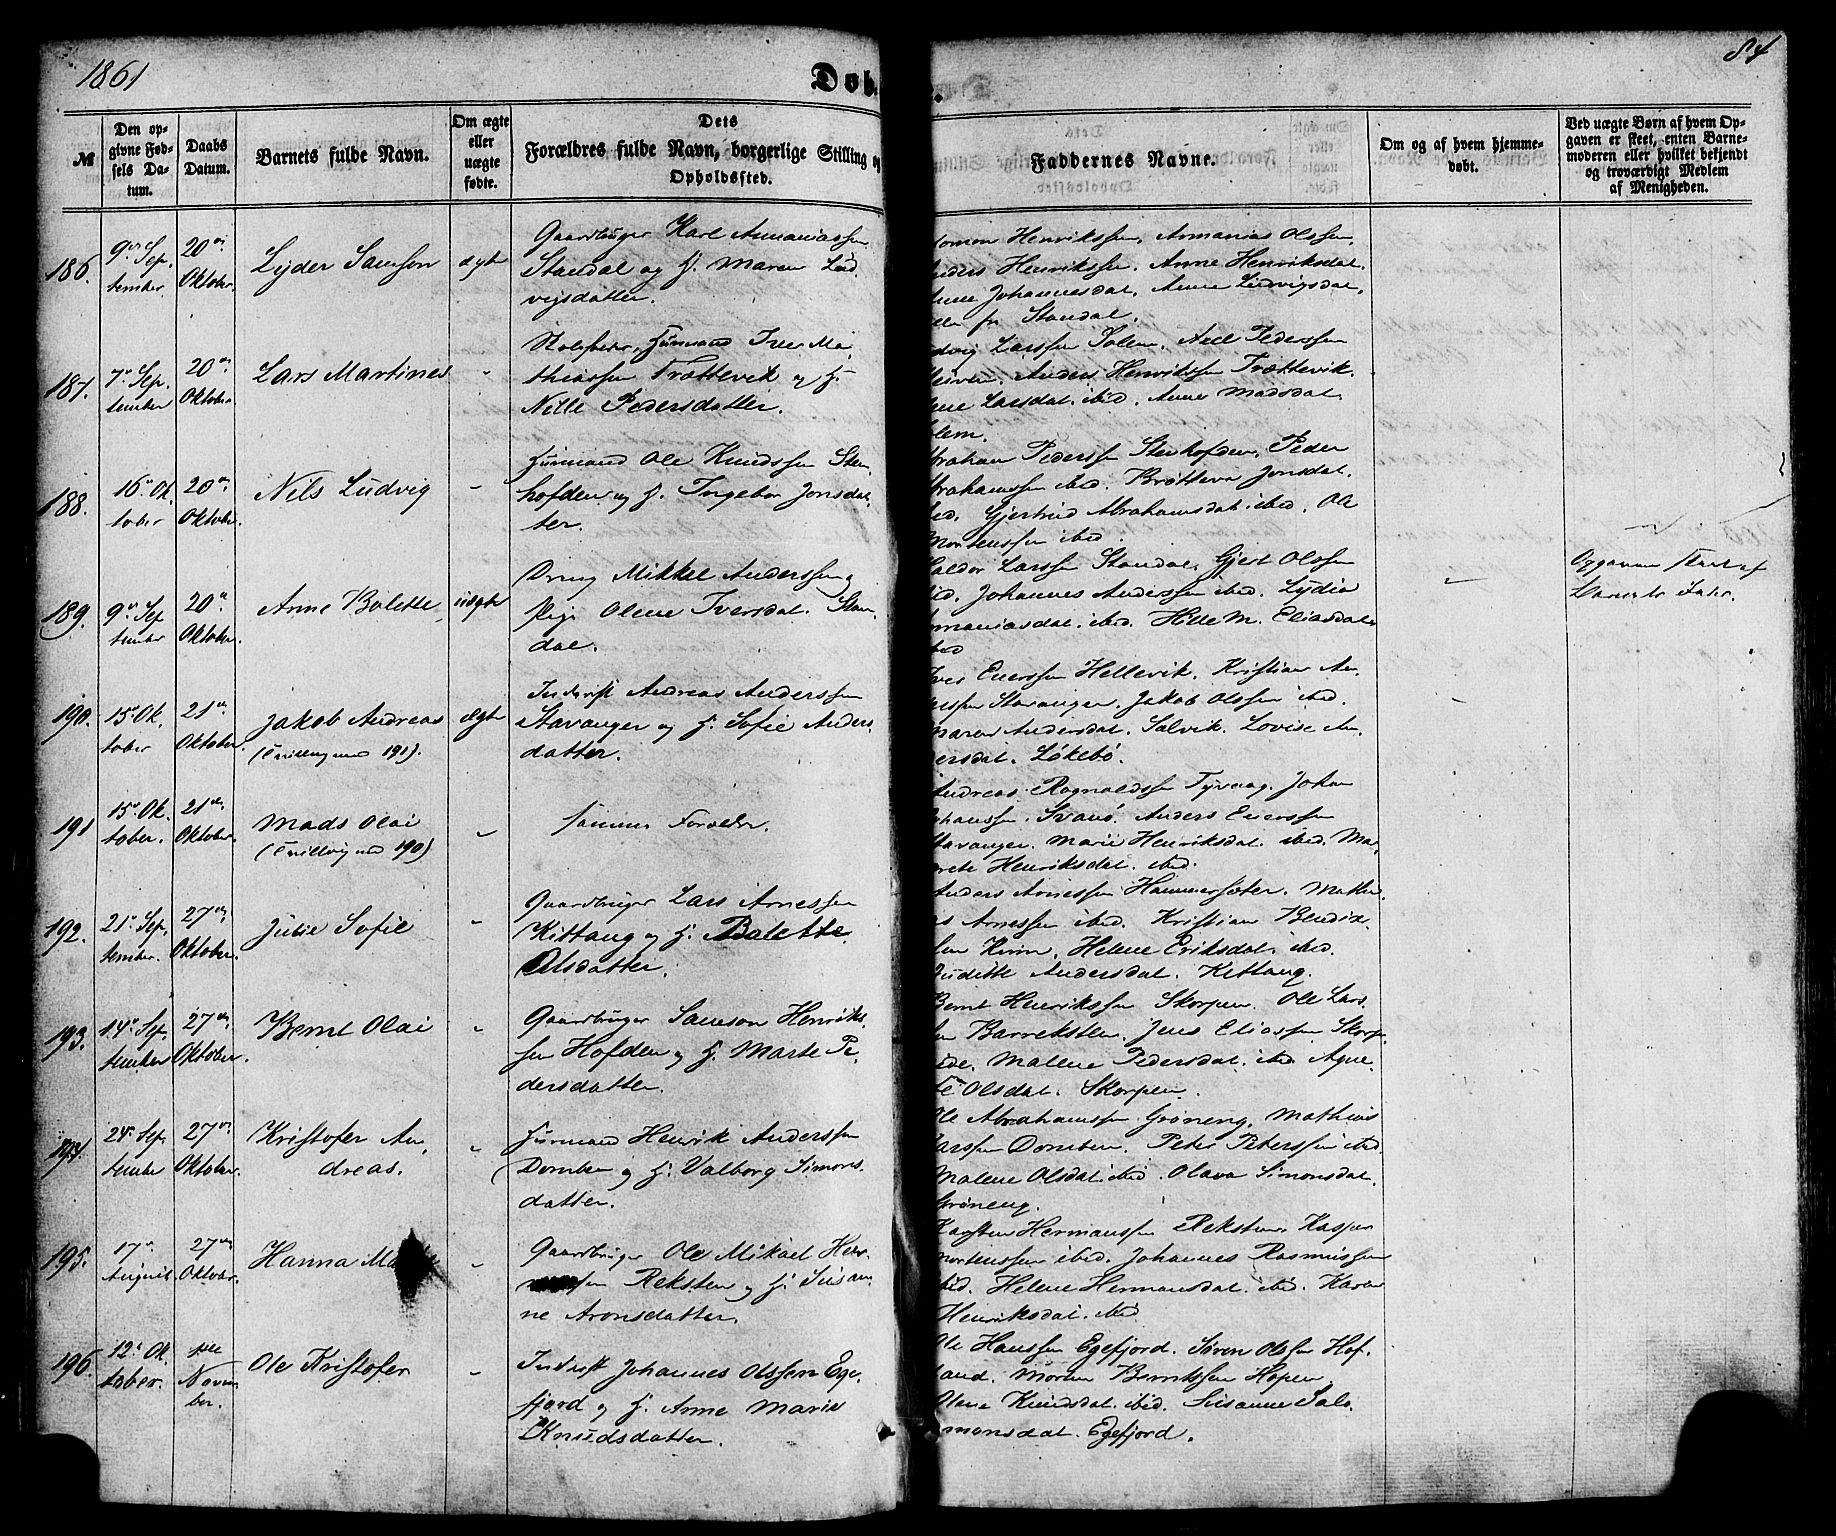 1861
Døb
84
№
Den opgivne Fødsels Datum.
Daabs Datum.
Barnets fulde Navn.
Om ægte eller uægte fødte.
Dets Forældres fulde Navn, borgerlige Stilling og Opholdssted.
Faddernes Navne.
Om og af hvem hjemmedøbt.
Ved uægte Børn af hvem Opgaven er skeet, enten Barnemoderen eller hvilket bekjendt og troværdigt Medlem af Menigheden.
186.
9de Sep,
tember
20de
Oktober.
Lyder Samson
ægte
Gaardbruger Karl Ananiassen
Standal og H. Maren Lud
vigsdatter.
lomon Henrikssen, Annanias Olssen,
nders Henrikssen. Anne Henriksdat.
Johannesdat, Anne Ludvigsdat,
fr Standal.
187.
7de Sep,
tember
20de
Oktober
Lars Martines
"
Huusmand Iver Ma
thiassen Trættevik og H.
Nille Pedersdatter.
dvig Larssen Solem, Niel Pederssen
Anders Henrikssen Trættevik.
Larsdat. ibid. Anne Madsdat.
olem.
188.
16de Ok
tober
20de
Oktober.
Nils Ludvig
"
Huusmand Ole Knudssen Sten
hofden og H. Ingebor Jonsdat
ter.
brahan Pederssen Stenhofden, Peder
brahamssen ibid. Brøtteva Jonsdat.
ibid. Gjertrud Abrahamsdat. ibid. Ole
Mortenssen ibid.
189.
9de Sep
tember
20de
Oktober.
Anne Bolette
uægte
Dreng Mikkel Anderssen og
Pige Olene Iversdat. Stan
dal.
Larssen Standal, Gjert Olssen
ibid. Johannes Anderssen ibid. Lydia
Ananiasdat. ibid. Hille M. Eliasdat.
ibid
Opgaven skeet af
Barnets Fader.
190.
15de Ok
tober
21de
Oktober.
Jakob Andreas
(Tvilling med 191).
ægte
Inderst Andreas Anderssen
Stavanger og H. Sofie Anders
datter.
Iver Everssen Hellevik. Kristian An
derssen Stavanger. Jakob Olssen ibid.
Maren Andersdat. Salvik. Lovise An
dersdat. Løkebø.
191
15de Ok.
tober.
21de
Oktober.
Mads Olai
(Tvilling med 190)
"
Samme Forældre.
Andreas Ragnaldssen Tyvaag, Johan
ohanssen. Svanø. Anders Everssen
Stavanger. Marie Henriksdat. ibid. Mar
grete Henriksdat. ibid.
192.
21de Sep,
tember.
27de
Oktober.
Julie Sofie
"
Gaardbruger Lars Arnessen
Kittang og H. Bolette
Olsdatter.
Anders Arnessen Hammersæter. Mathi
as Arnessen ibid. Kristian Bendix
sen Kvien, Helene Eriksdat. ibid.
Judithe Andersdat. Kittang.
193.
14de Sep
tember
27de
Oktober.
Bernt Olai
"
Gaardbruger Samson Henriks
sen Hofden og H. Marte Pe
dersdatter.
Bernt Henrikssen Skorpen. Ole Lars
sen Barreksten. Jens Eliassen Skorp
ide. Malene Pedersdat. ibid Agne
te Olsdat. Skorpen.
194.
24de Sep
tember
27de
Oktober.
Kristofer An
dreas.
"
Huusmand Henrik Anderssen
Domben og H. Valborg Simons
datter.
Ole Abrahamssen Grøneng, Mathias
Larssen Domben. Peter Peterssen ibid.
Malene Olsdat. ibid. Olava Simonsdat.
Grøneng.
195.
17de
August
27de
Oktober.
Hanna Ma
"
Gaardbruger Ole Mikael Her
sen Reksten og H. Susan
ne Aronsdatter.
Karsten Hermanssen Reksten, Kasper
Mortenssen ibid. Johannes Rasmussen
ibid. Helene Hermansdat. ibid. Karen
Henriksdat. ibid
196.
12te Ok.
tober.
1ste
Novem
ber.
Ole Kristofer
"
Inderst Johannes Olssen Ege
fjord og H. Anne Marie
Knudsdatter.
Ole Hanssen Egefjord. Søren Olssen Hof
land. Morten Berntssen Hopen
Olene Knudsdat. ibid. Susanne Salo
monsdat. Egefjord.